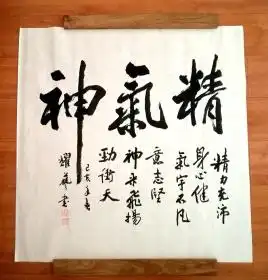 精氣神
精力充沛
身心健
氣宇不凡
意志堅
神采飛揚
勁衝天
己亥年春
耀藝書